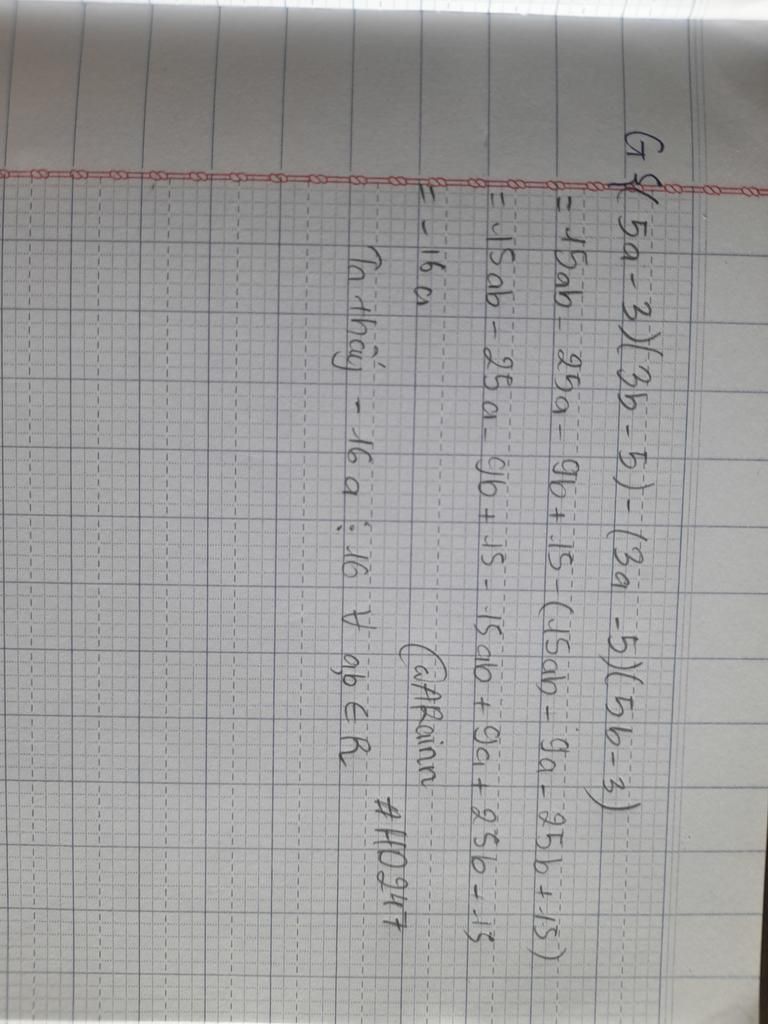 G (5a - 3)(3b - 5) - (3a - 5)(5b - 3)
= 15ab - 25a - 9b + 15 - (15ab - 9a - 25b + 15)
= 15ab - 25a - 9b + 15 - 15ab + 9a + 25b - 15
= - 16a
@ARainn
#HD247
Ta thấy - 16a ⋮ 16 ∀ a,b ∈ R